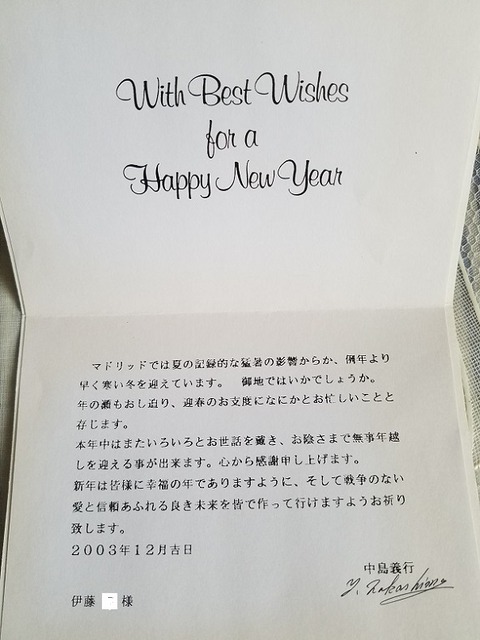 With Best Wishes
for a
Happy New Year
マドリッドでは夏の記録的な猛暑の影響からか、例年より
早く寒い冬を迎えています。 御地ではいかでしょうか。
年の瀬もおし迫り、迎春のお支度になにかとお忙しいことと
存じます。
本年中はまたいろいろとお世話を戴き、お陰さまで無事年越
しを迎える事が出来ます。心から感謝申し上げます。
新年は皆様に幸福の年でありますように、そして戦争のない
愛と信頼あふれる良き未来を皆で作って行けますようお祈り
致します。
2003年12月吉日
中島義行
Y. Nakashima
伊藤 様